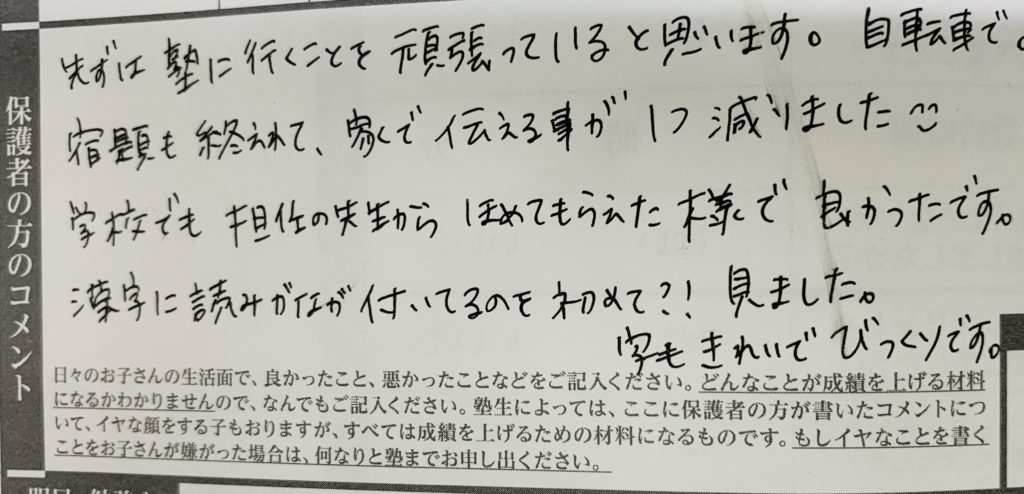 保護者の方のコメント
先ずは塾に行くことを頑張っていると思います。自転車で。
宿題も終えれて、家で伝える事が1つ減りました
学校でも担任の先生からほめてもらえた様で良かったです。
漢字に読みがなが付いてるのを初めて?!見ました。
字もきれいでびっくりです。
日々のお子さんの生活面で、良かったこと、悪かったことなどをご記入ください。どんなことが成績を上げる材料
になるかわかりませんので、なんでもご記入ください。塾生によっては、ここに保護者の方が書いたコメントにつ
いて、イヤな顔をする子もおりますが、すべては成績を上げるための材料になるものです。もしイヤなことを書く
ことをお子さんが嫌がった場合は、何なりと塾までお申し出ください。